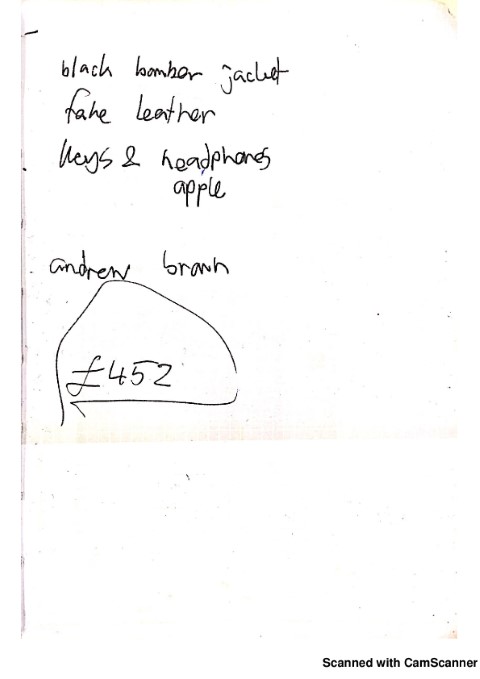 black bomber jacket
fake leather
keys & headphones
apple
andrew brown
£452
Scanned with CamScanner